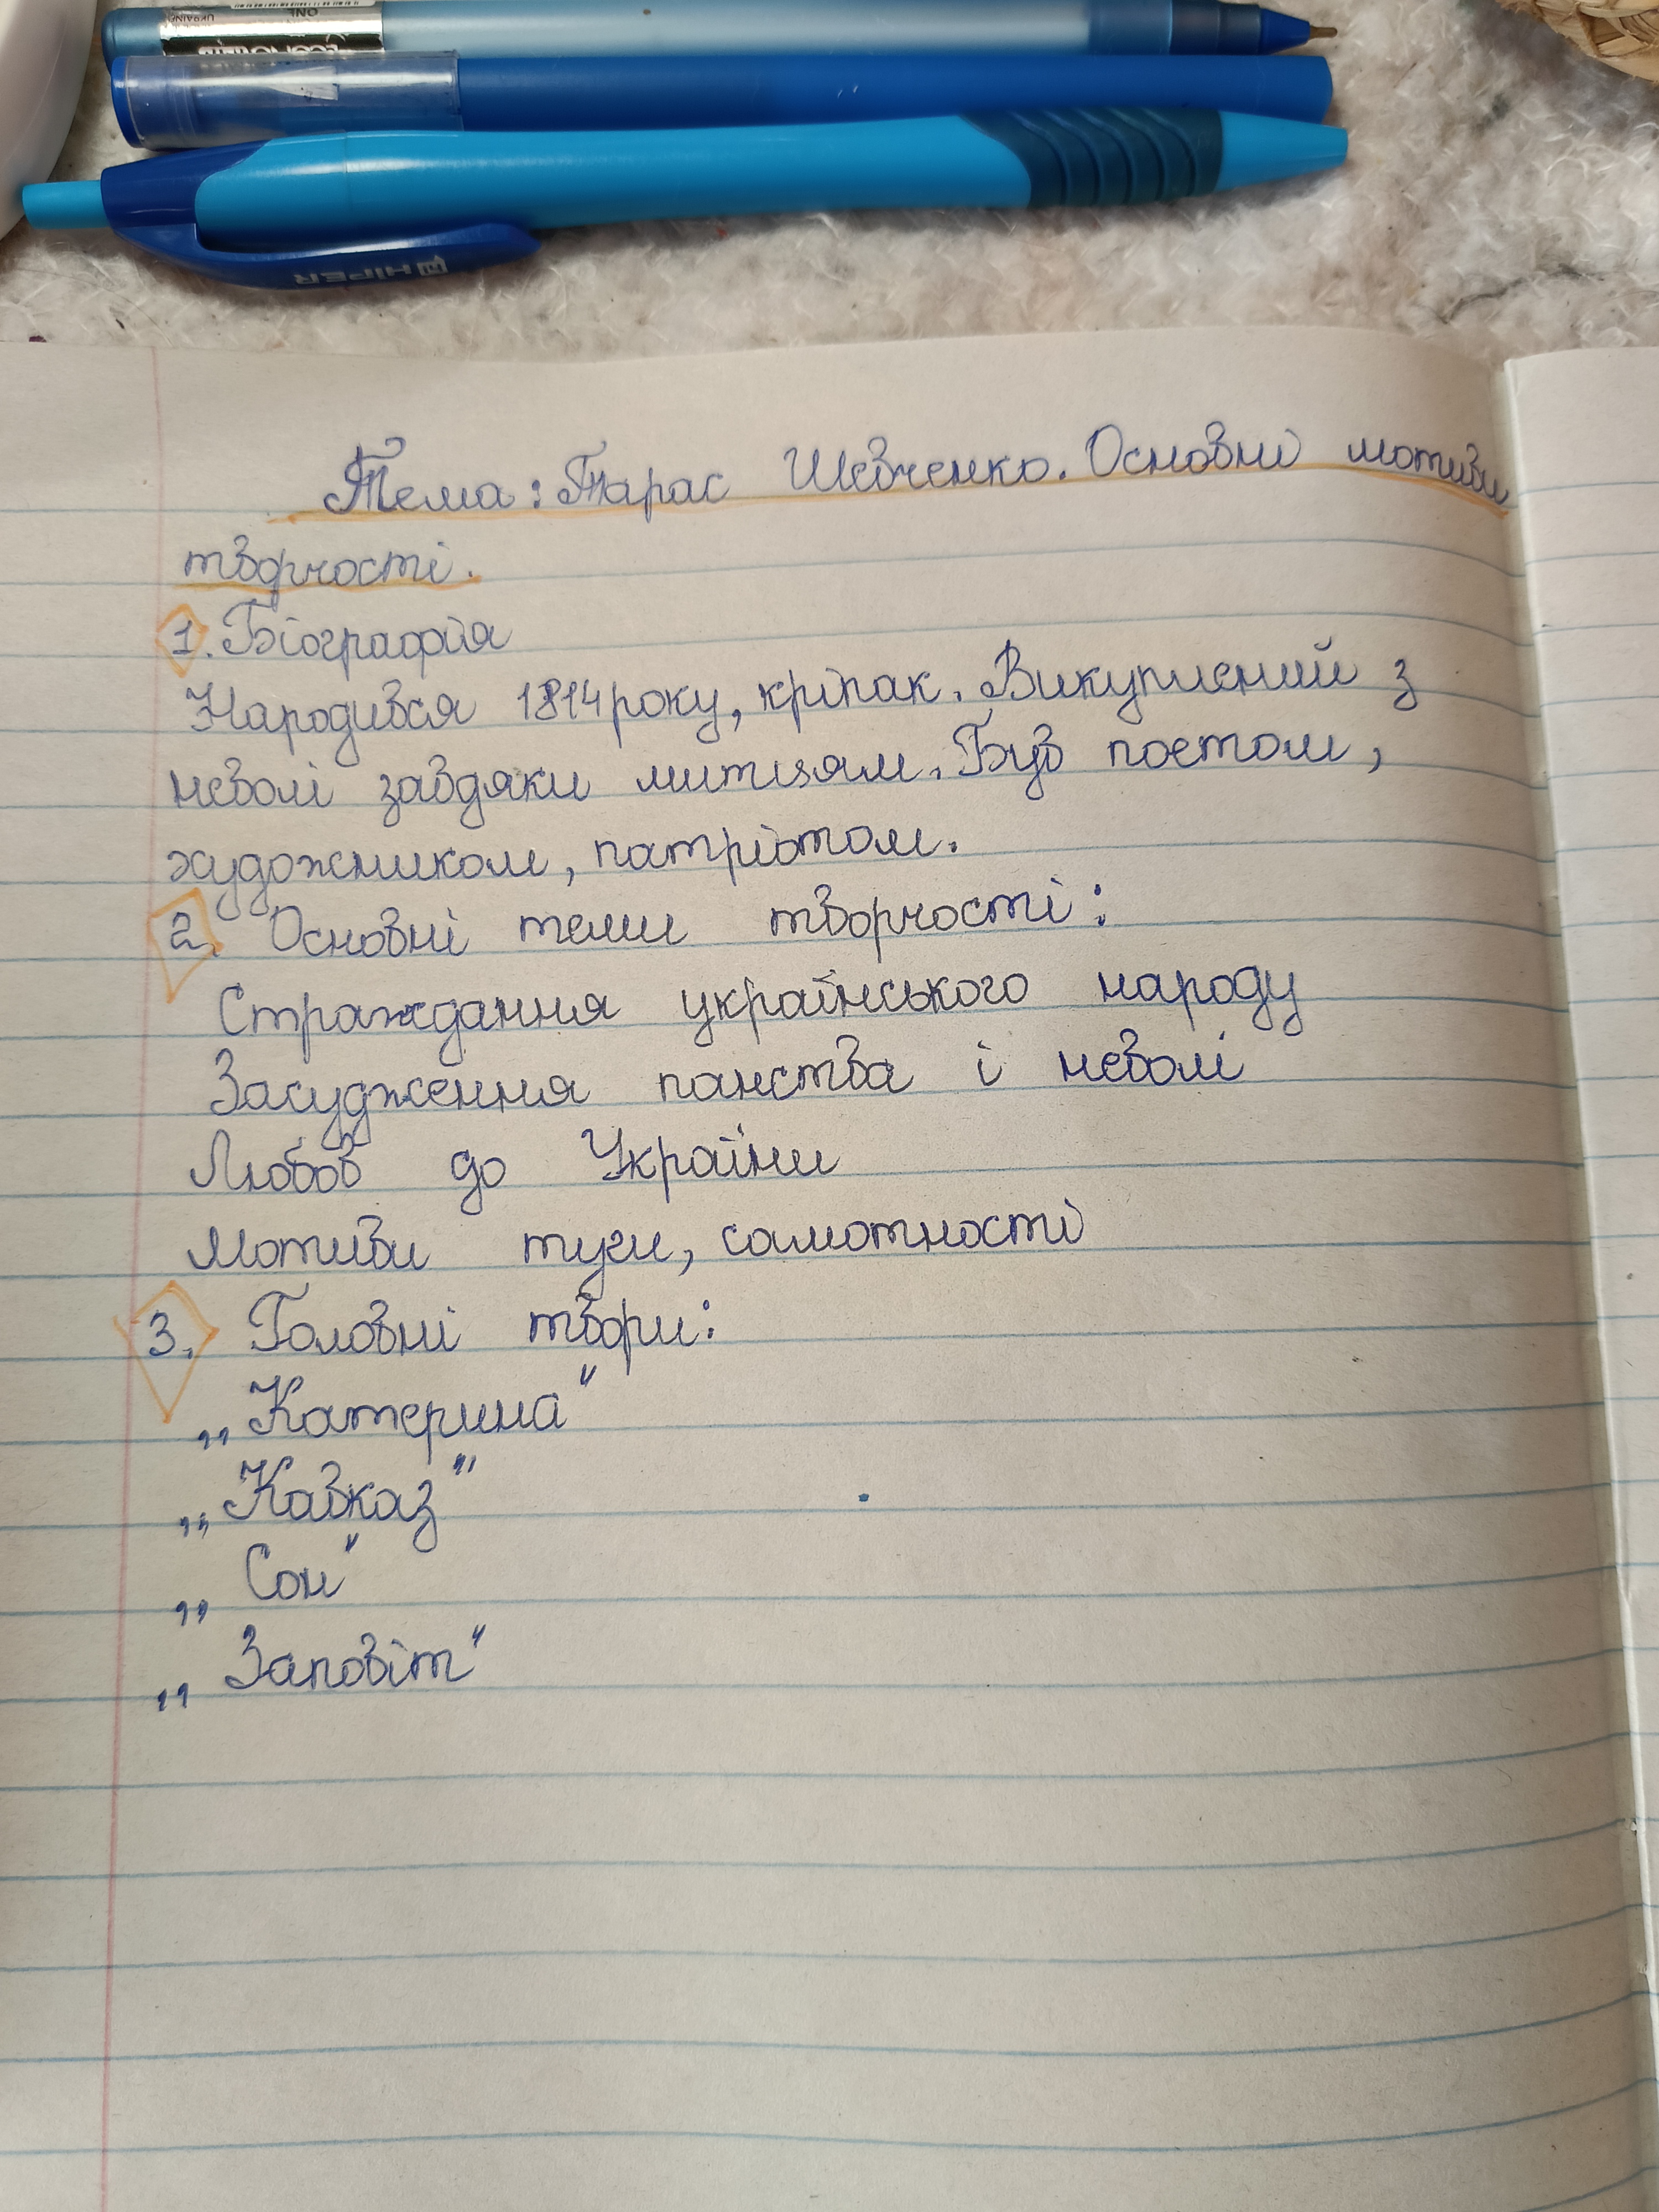 HIPER
Тема: Тарас Шевченко. Основні мотиви
творчості.
1. Біографія
Народився 1814 року, кріпак. Викуплений з
неволі завдяки митцям. Був поетом,
художником, патріотом.
2. Основні теми творчості:
Страждання українського народу
Засудження панства і неволі
Любов до України
Мотиви туги, самотності
3. Головні твори:
„Катерина"
„Кавказ"
„Сон"
„Заповіт"